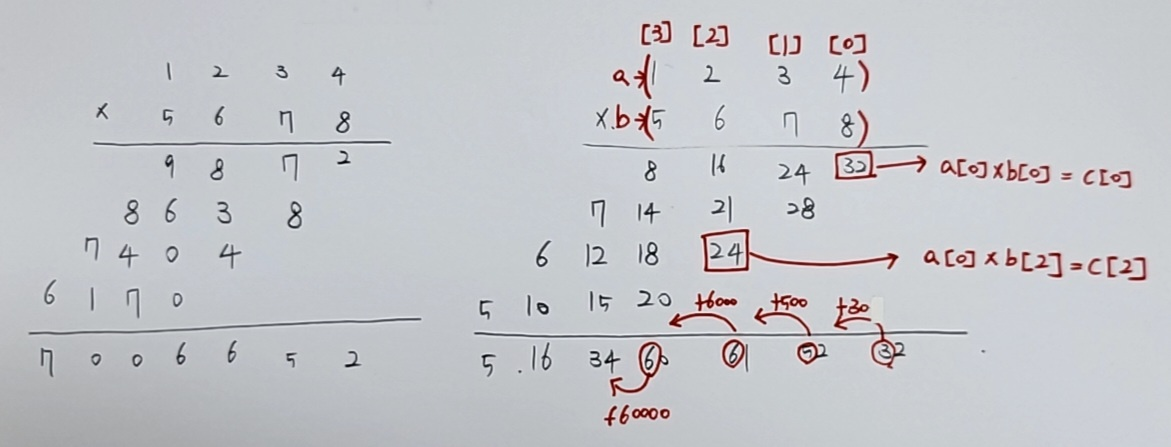 1 2 3 4
× 5 6 7 8
9 8 7 2
8 6 3 8
7 4 0 4
6 1 7 0
7 0 0 6 6 5 2
[3] [2] [1] [0]
a→(1 2 3 4)
×.b→(5 6 7 8)
8 16 24 32 → a[0]×b[0]=c[0]
7 14 21 28
6 12 18 24 → a[0]×b[2]=c[2]
5 10 15 20
+6000 +500 +30
5 .16 34 60 61 52 32
+60000